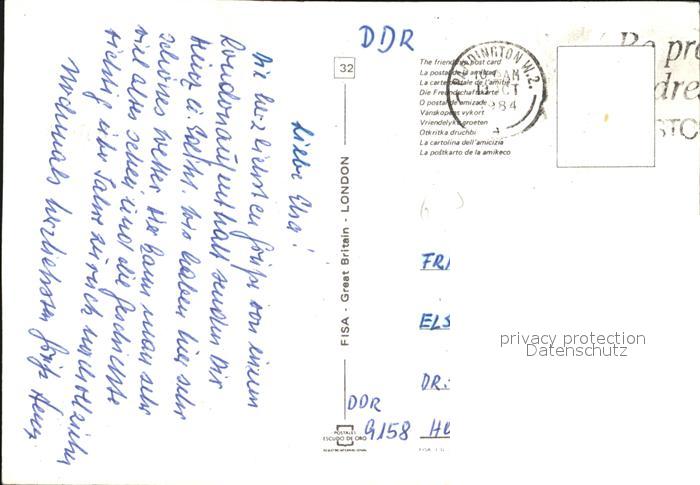 Liebe Elsa!
Die herzlichsten Grüße von einem
Londonaufenthalt senden Dir
Heinz u. Wir haben hier sehr
schönes Wetter. Hier kann man sehr
viel altes sehen und die Geschichte
richtig über Jahre zurück nachvollziehen
Nochmals herzlichsten Grüße Heinz
32
FISA - Great Britain - LONDON
DDR
The friendship post card
La postal de la amistad
La carte postale de l'amitié
Die Freundschaftskarte
O postal de amizade
Vänskapens vykort
Vriendelyke groeten
Otkritka druchbi
La cartolina dell'amicizia
La poŝtkarto de la amikeco
PADDINGTON W.2.
AM
1984
Be pro
dre
STC
FR
ELS
DR.
DDR
9158 H
POSTALES
ESCUDO DE ORO
privacy protection
Datenschutz